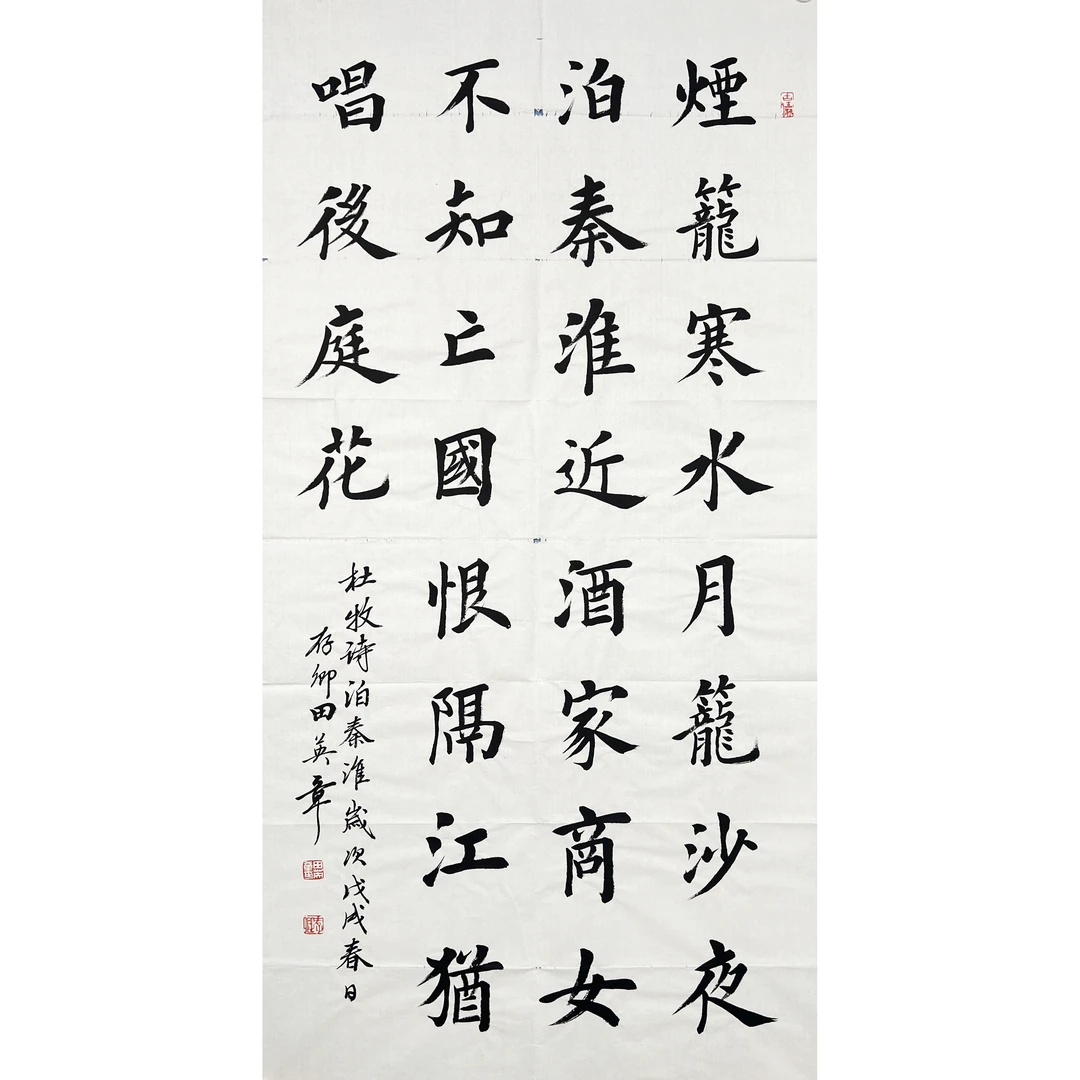 煙籠寒水月籠沙夜
泊秦淮近酒家商女
不知亡國恨隔江猶
唱後庭花
杜牧诗泊秦淮歲次戊戌春日
存卿田英章